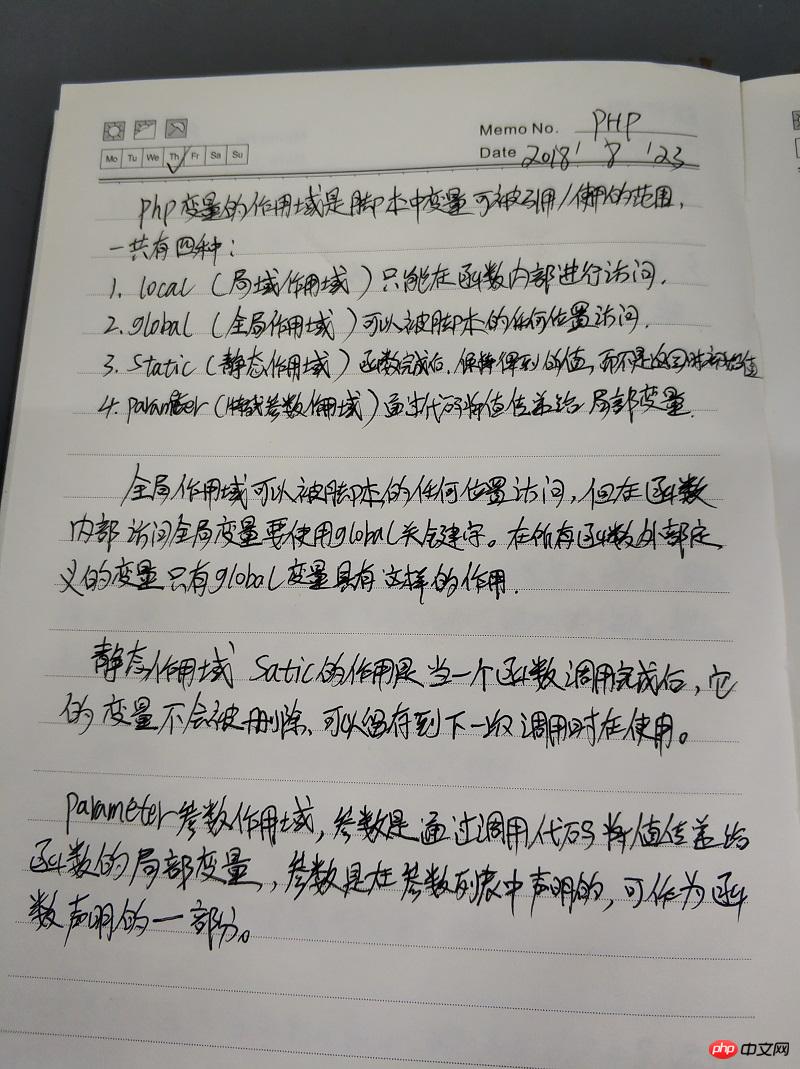 Memo No. PHP
Mo Tu We Th Fr Sa Su
Date 2018 ' 8 ' 23
php变量的作用域是脚本中变量可被引用/使用的范围,
一共有四种:
1. local (局域作用域) 只能在函数内部进行访问.
2. global (全局作用域) 可以被脚本的任何位置访问.
3. Static (静态作用域) 函数完成后, 保持得到的值, 而不是
4. parameter (参数作用域) 通过代码将值传差给局部变量.
全局作用域可以被脚本的任何位置访问, 但在函数
内部访问全局变量要使用global关键字。在所有函数外部定
义的变量只有global变量具有这样的作用.
静态作用域 Satic的作用是当一个函数调用完成后, 它
的变量不会被删除、可以留存到下一次调用时在使用。
parameter参数作用域, 参数是通过调用代码将值传差给
函数的局部变量,, 参数是在参数列表中声明的, 可作为函
数声明的一部分。
php 中文网